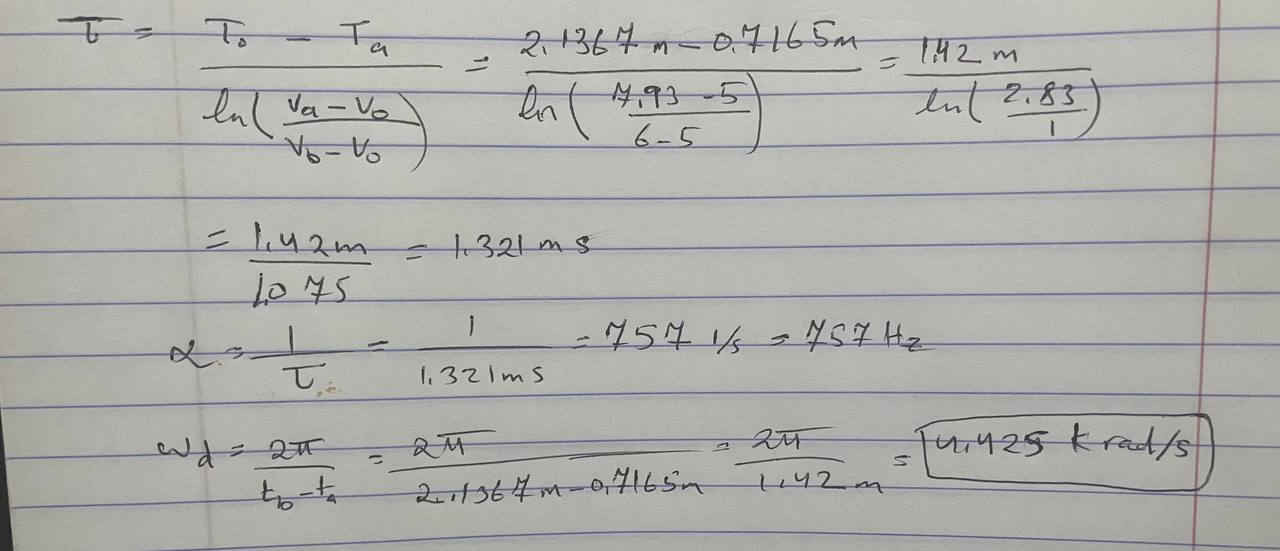 τ = (T₀ - Tₐ) / ln((Vₐ - V₀)/(V_b - V₀)) = (2.1367m - 0.7165m) / ln((7.93 - 5)/(6 - 5)) = 1.42 m / ln(2.83/1)
= 1.42m / 1.075 = 1.321 ms
α = 1/τ = 1/1.321ms = 757 1/s = 757 Hz
ω_d = 2π/(t_b - tₐ) = 2π/(2.1367m - 0.7165m) = 2π/1.42 m = 4.425 k rad/s